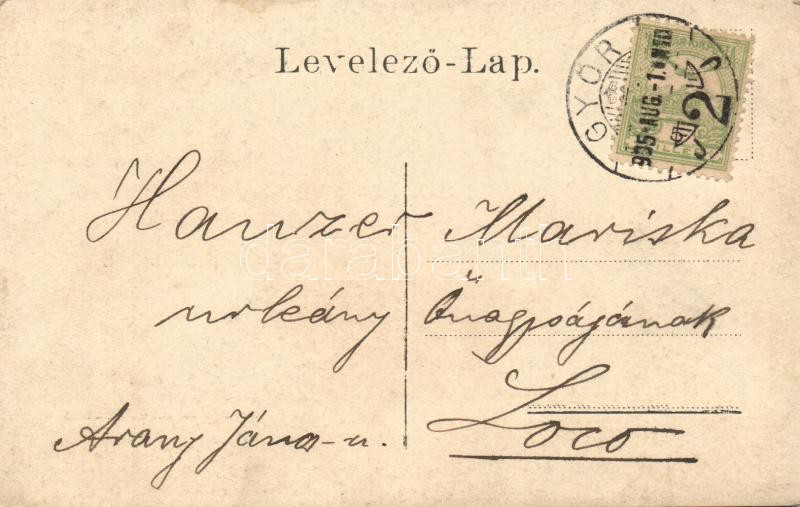 Levelező-Lap.
GYŐR
905 AUG. -1.
2
Hauzer Mariska
urleány Őnagyságának
Loco
Arany János-u.
darabanth